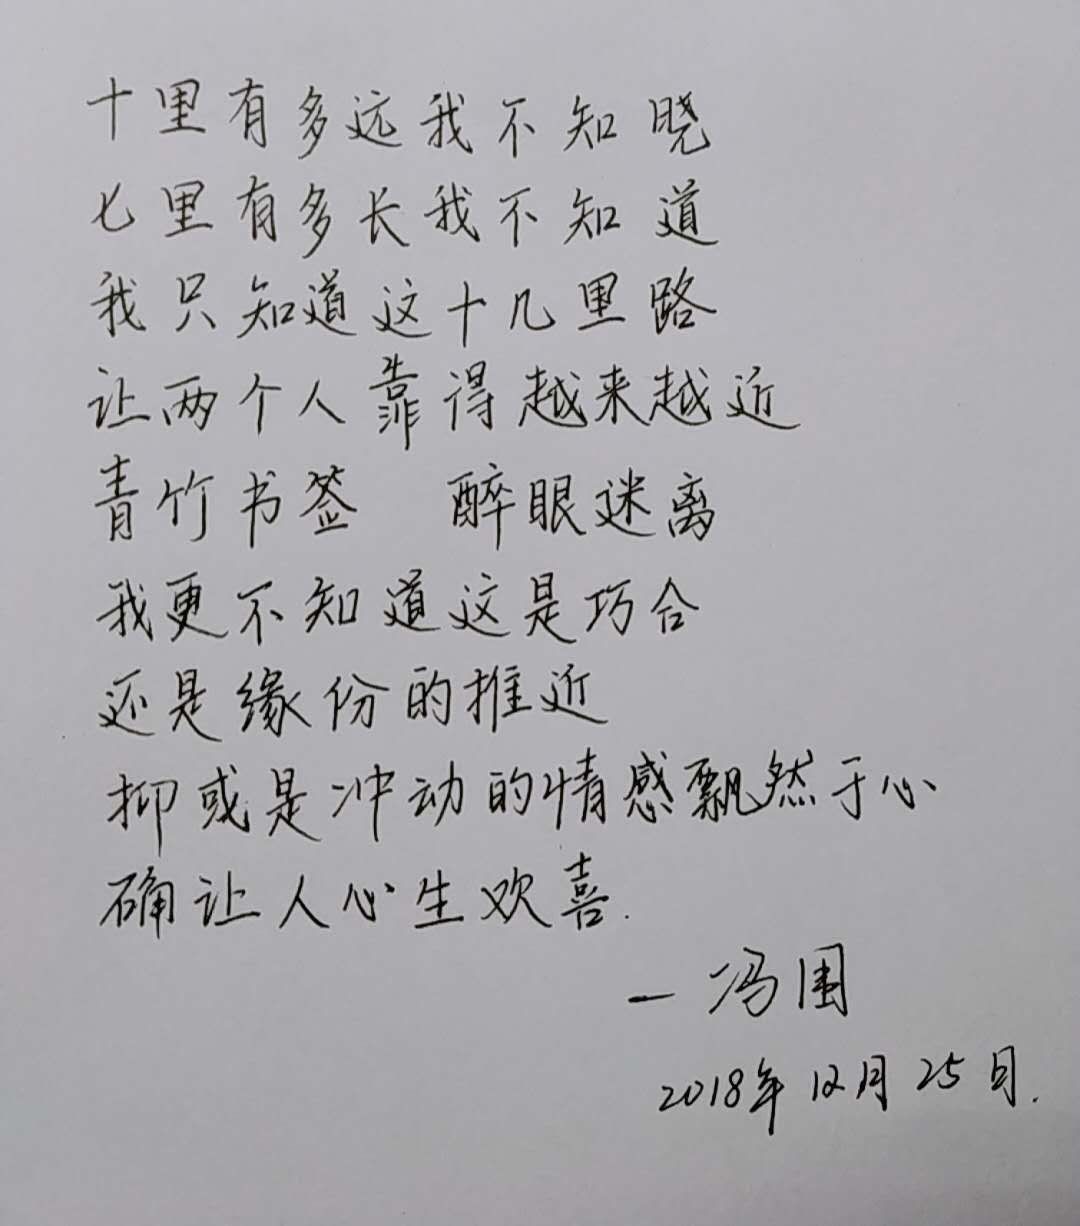 十里有多远我不知晓
七里有多长我不知道
我只知道这十几里路
让两个人靠得越来越近
青竹书签 醉眼迷离
我更不知道这是巧合
还是缘份的推近
抑或是冲动的情感飘然于心
确让人心生欢喜.
—冯围
2018年12月25日.